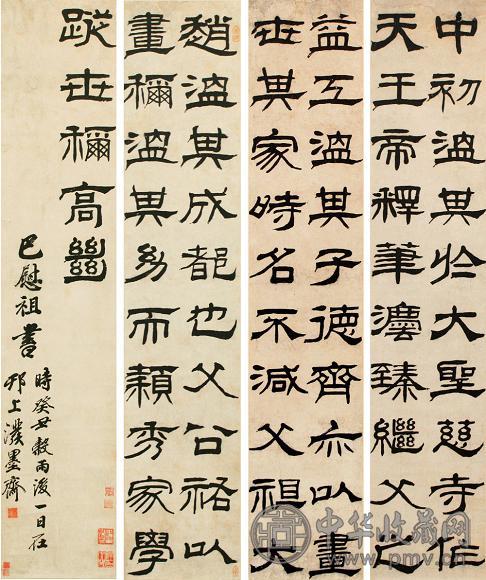 中初溫其於大聖慈寺作
天王帝釋筆灋臻繼父之
益工溫其子德齊亦以畫
世其家時名不減父祖矣
趙溫其成都也父公祐以
畫稱溫其幼而穎秀家學
蹤世稱高
巴慰祖書
時癸丑穀雨後一日在
邗上潑墨齋
中华收藏网
www.pmv.cn